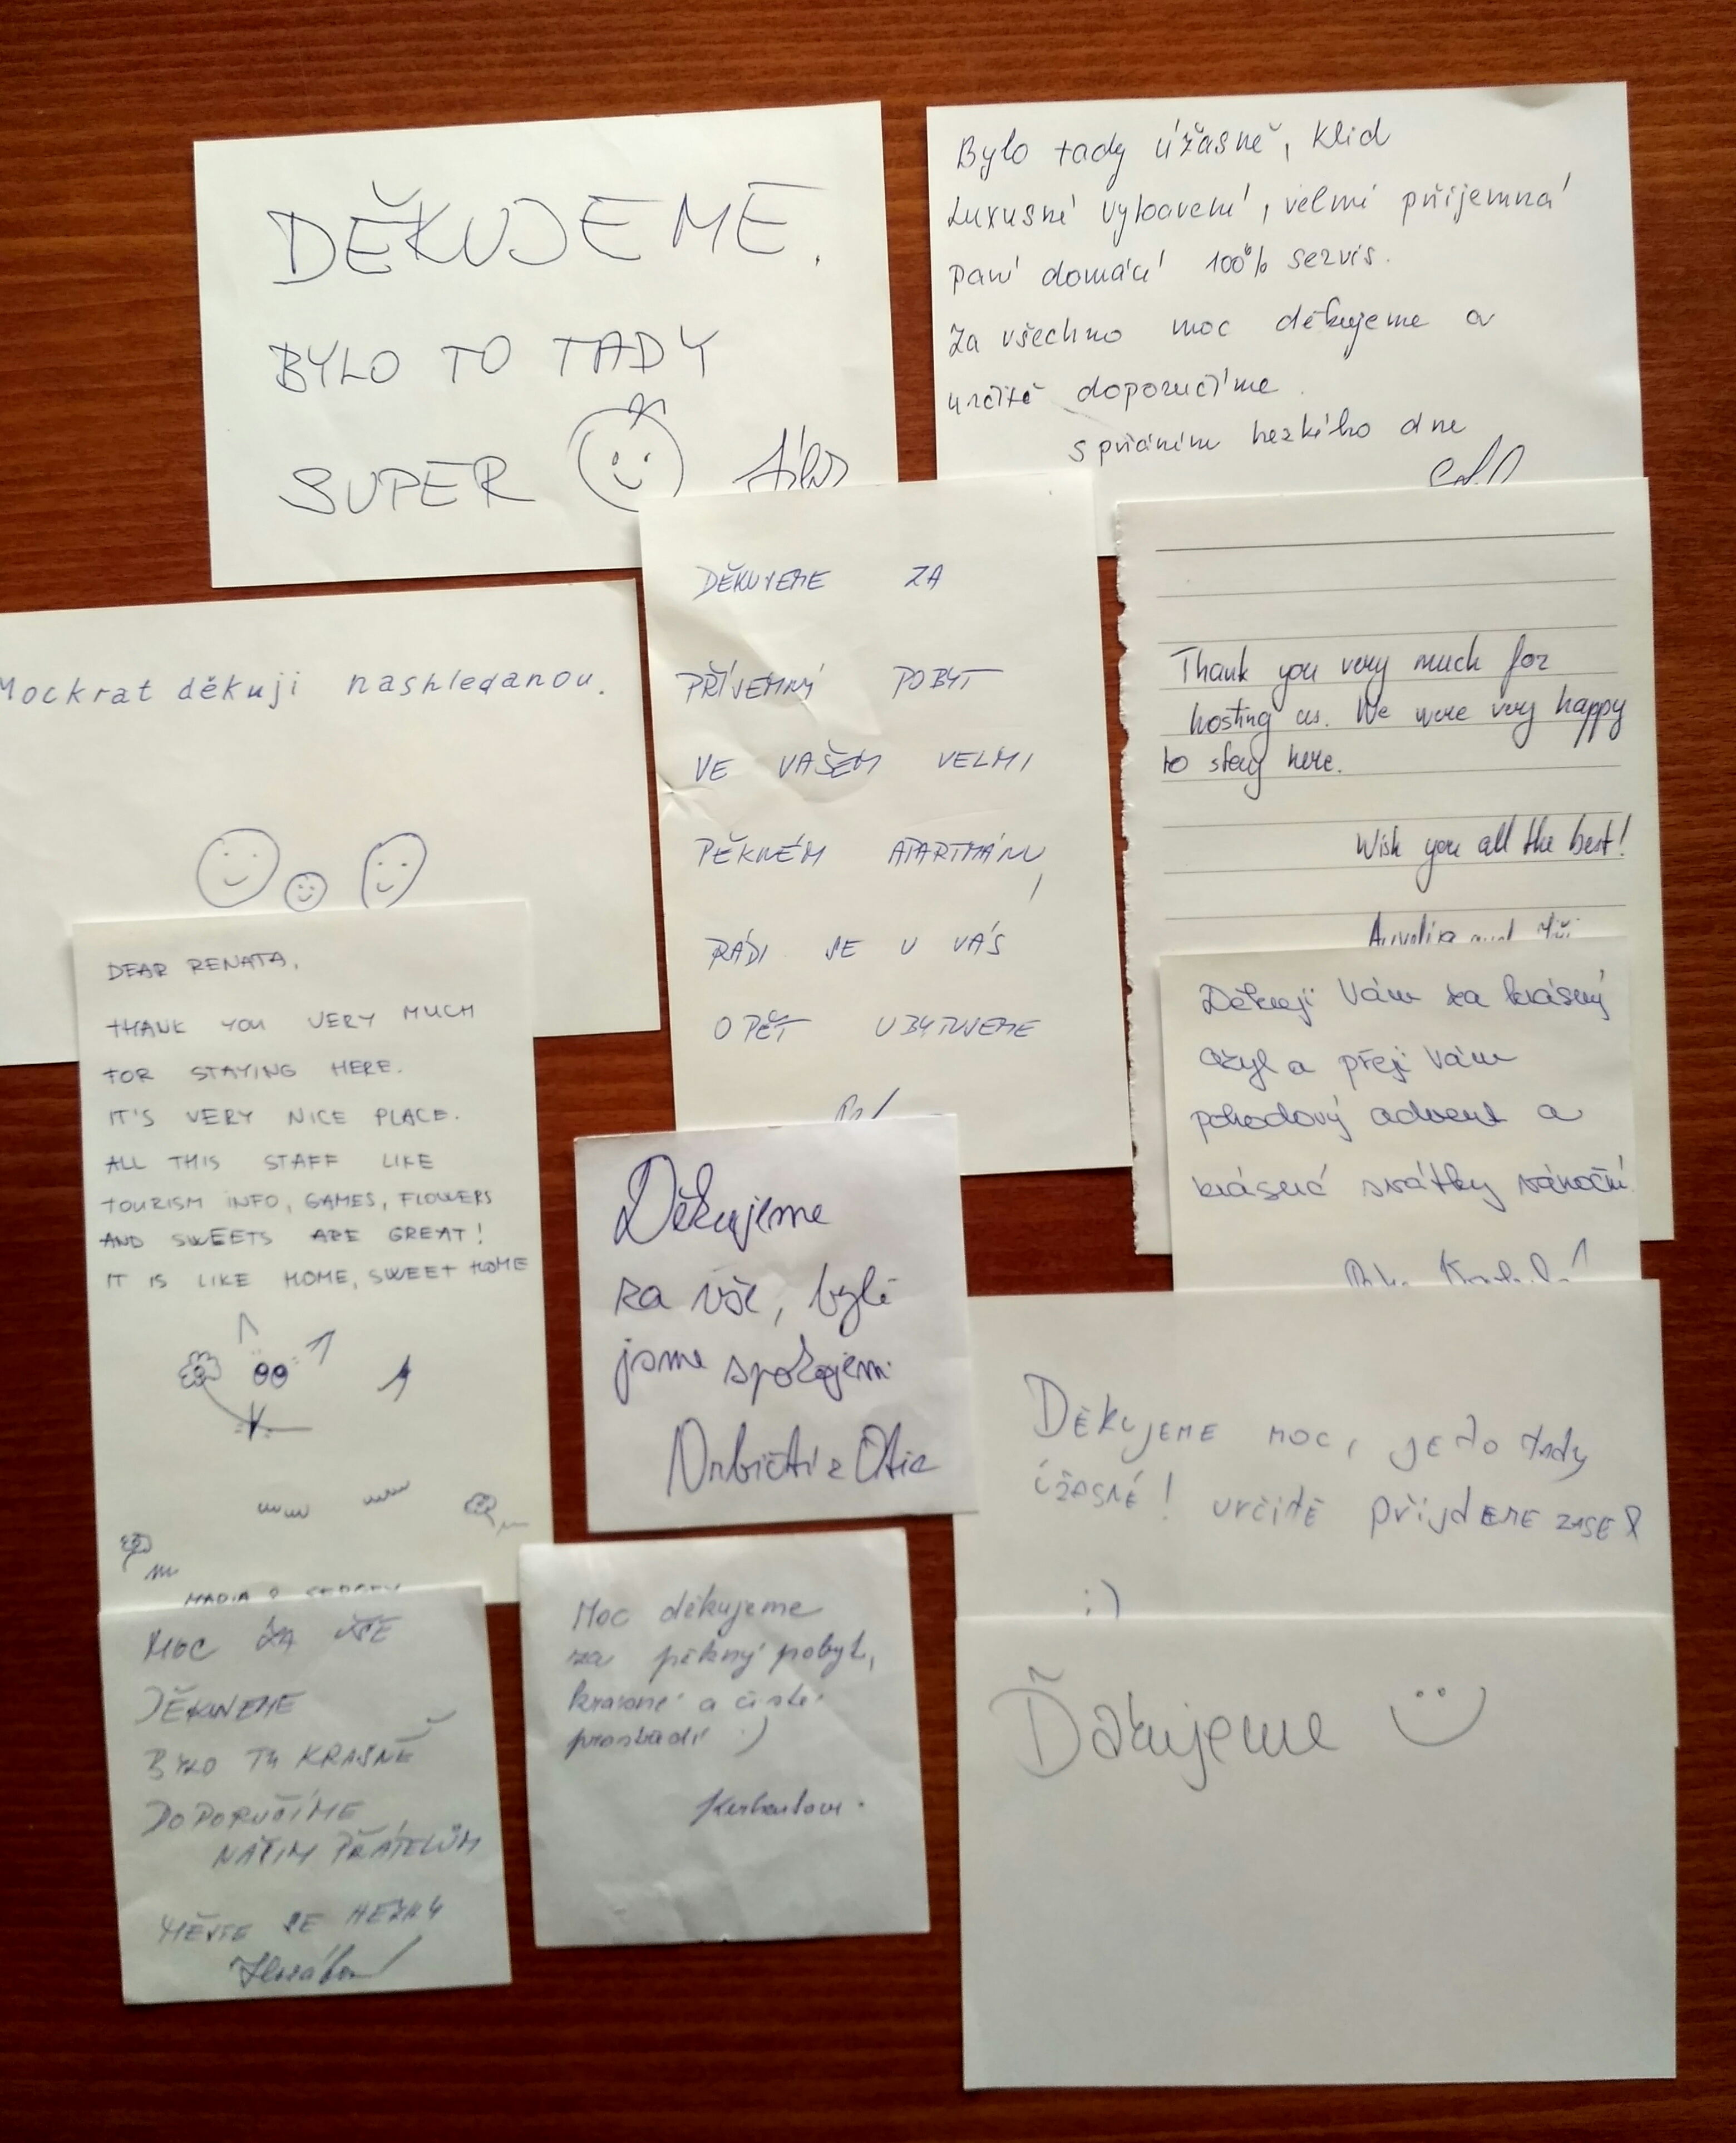 DĚKUJEME.
BYLO TO TADY
SUPER
Bylo tady úžasně, klid
Luxusní vybavení, velmi příjemná
paní domácí 100% servis.
Za všechno moc děkujeme a
určitě doporučíme.
s přáním hezkého dne
Mockrat děkuji nashledanou.
DĚKUJEME ZA
PŘÍJEMNÝ POBYT
VE VAŠEM VELMI
PĚKNÉM APARTMÁNU,
RÁDI SE U VÁS
OPĚT UBYTUJEME
Thank you very much for
hosting us. We were very happy
to stay here.
Wish you all the best!
DEAR RENATA,
THANK YOU VERY MUCH
FOR STAYING HERE.
IT'S VERY NICE PLACE.
ALL THIS STAFF LIKE
TOURISM INFO, GAMES, FLOWERS
AND SWEETS ARE GREAT!
IT IS LIKE HOME, SWEET HOME
Děkuji Vám za krásný
azyl a přeji Vám
pohodový advent a
krásné svátky vánoční.
Děkujeme
za vše, byli
jsme spokojeni
DĚKUJEME MOC, JE TO tady
ÚŽASNÉ! URČITĚ PŘIJDEME ZASE
:)
MOC ZA VŠE
DĚKUJEME
BYLO TU KRÁSNĚ
DOPORUČÍME
NAŠIM PŘÁTELŮM
MĚJTE SE HEZKY
Moc děkujeme
za pěkný pobyt,
krásné a čisté
prostředí :)
Ďakujeme